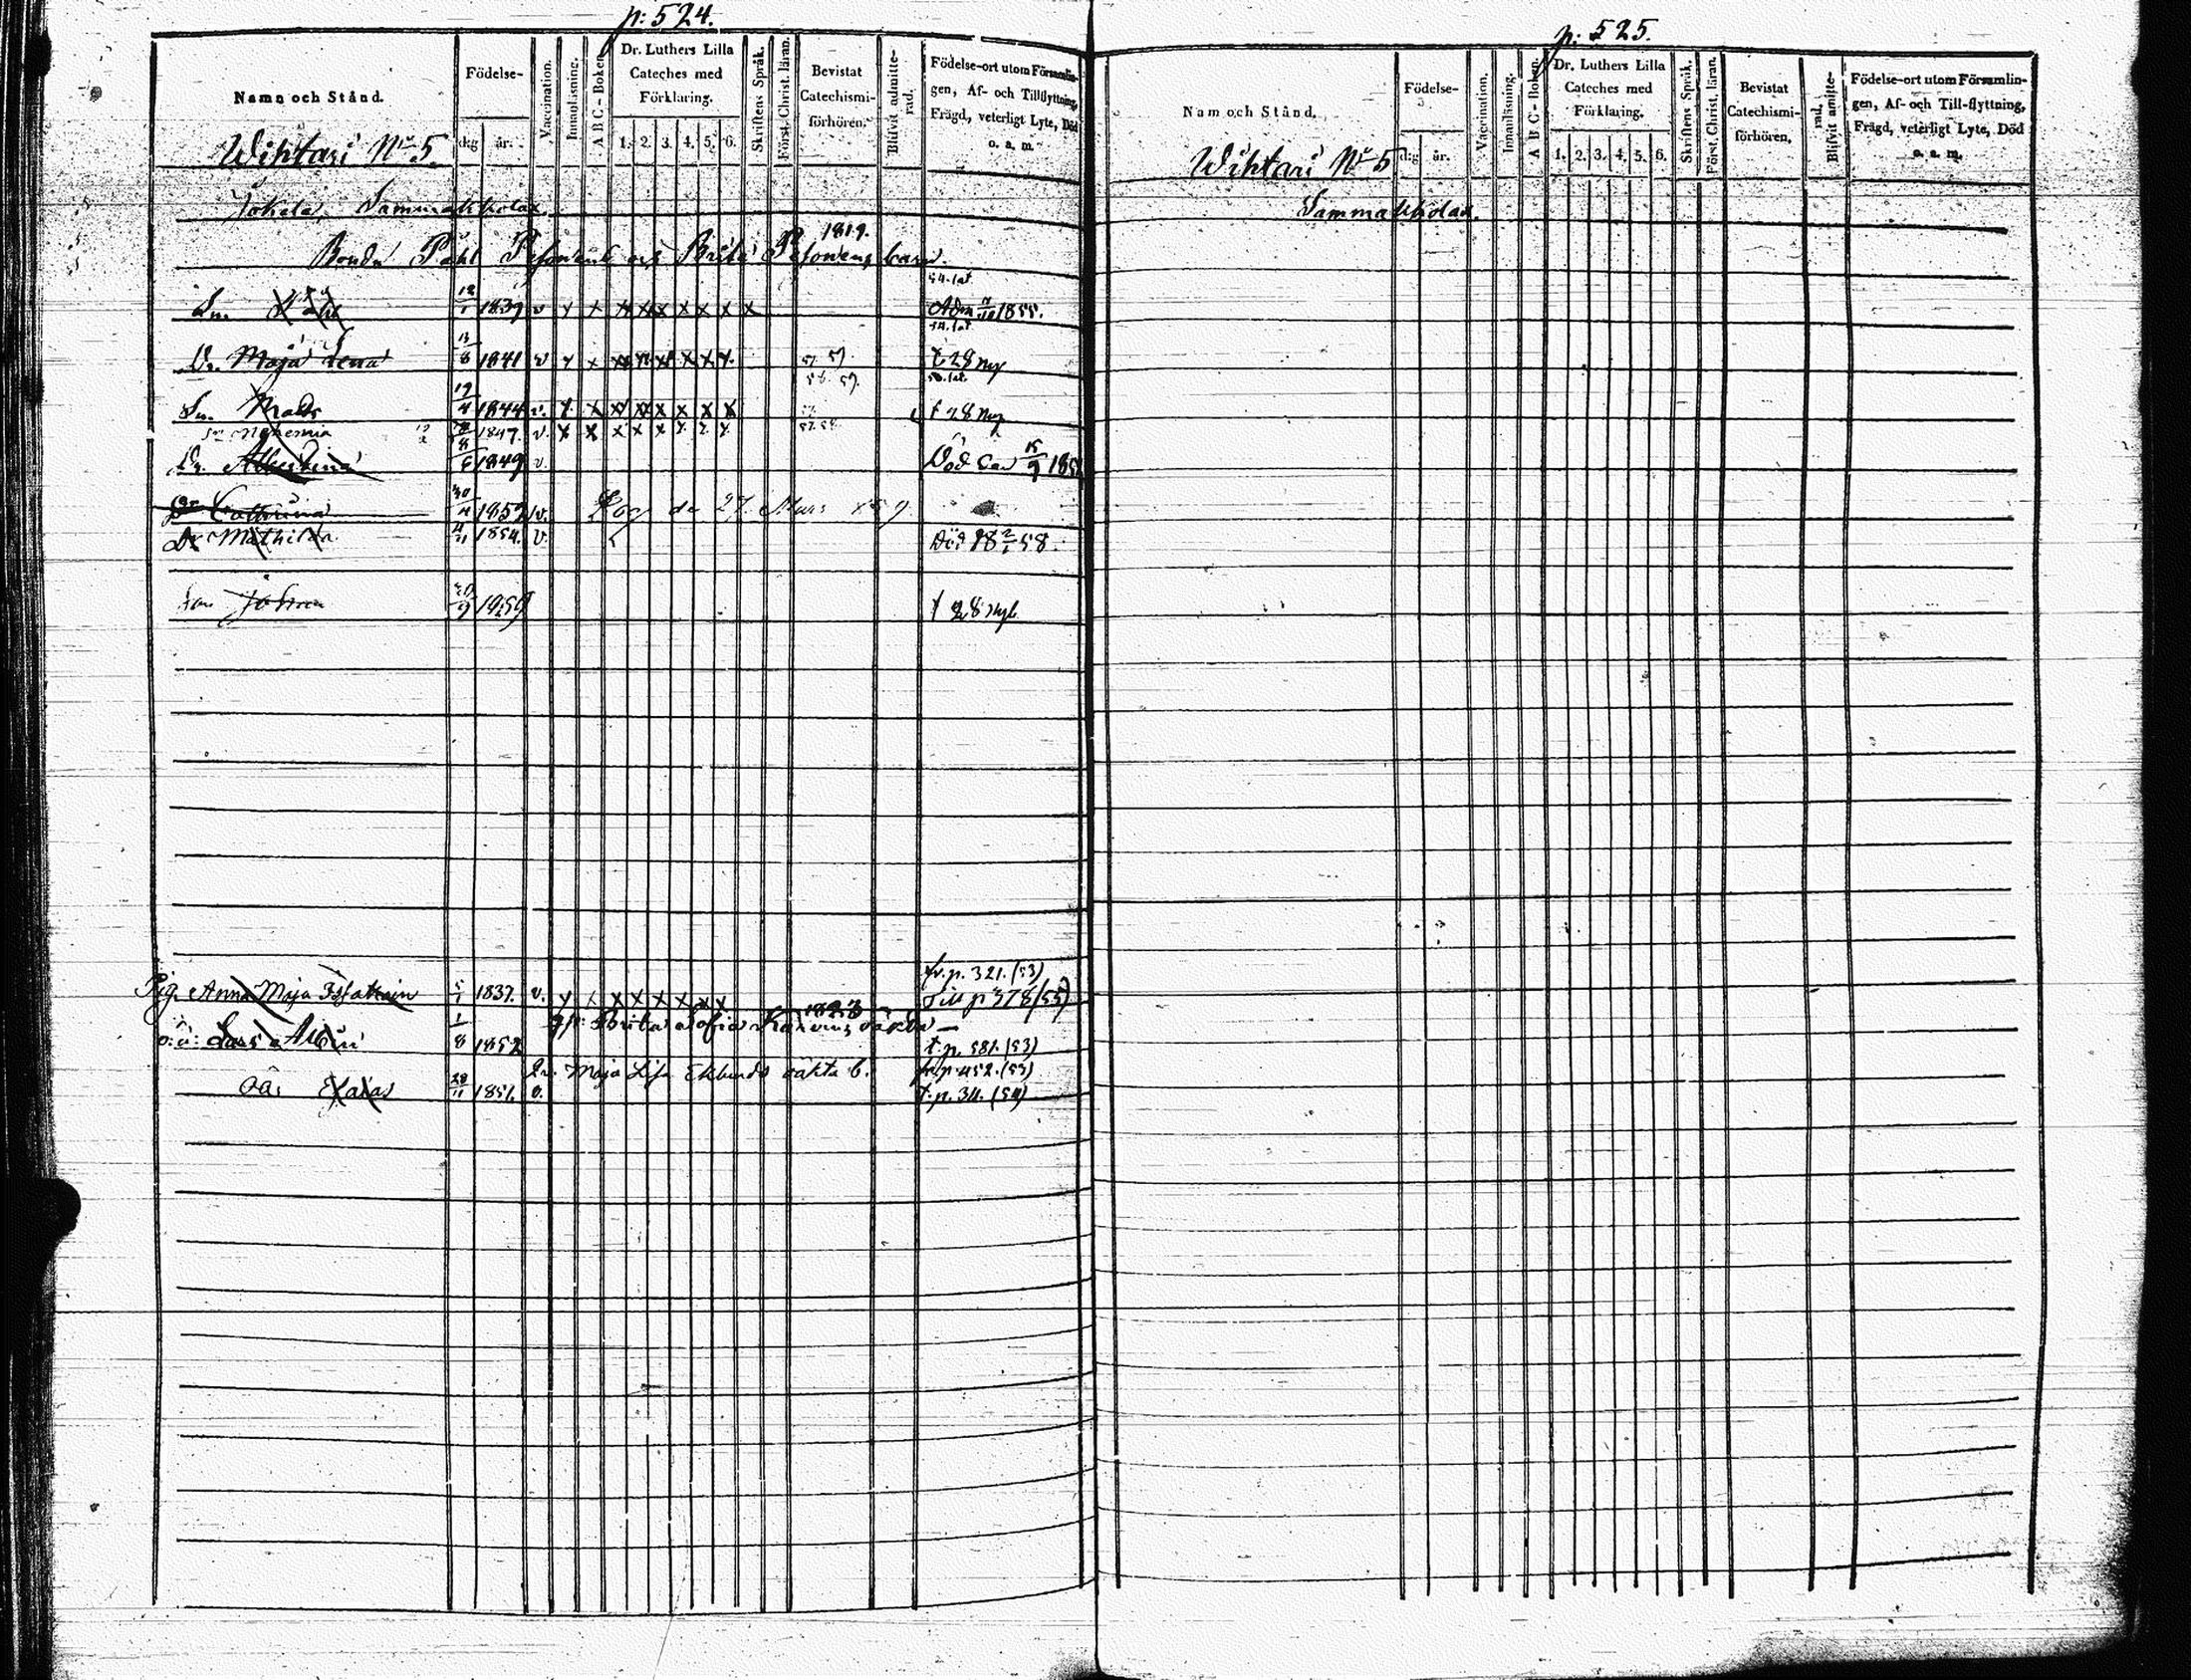 p: 524.
Namn och Stånd.
Födelse-
dag
år.
Vaccination.
Innanläsning.
A B C - Boken.
Dr. Luthers Lilla
Cateches med
Förklaring.
1. 2. 3. 4. 5. 6.
Skriftens Språk.
Först. Christ. läran.
Bevistat
Catechismi-
förhören.
Blifvit admitte-
rad.
Födelse-ort utom Församlin-
gen, Af- och Tillflyttning,
Frägd, veterligt Lyte, Död
o. a. m.
Wihtari No 5.
Jokela, Sammakkolax.
1819.
Bonden Påhl Pesonens och Brita Pesonens barn.
54. lat
Sn. 12/1 1839 v x x xx xx x x x x x Adm 1855.
54. lat
Dr. Maja Lena 13/8 1841 v x x xx x x x x x 57 t 28 ny
58. 59. 50. lat.
Sn. Mats 19/4 1844 v. x x x xx x x x x t 28 ny
Sn Nehemia 1847. v. x x x x x x x x 57. 58.
Dr. Albertina 1849 v. Död den 15/9
Dr Cathrina 30/4 1852 v. 27. Mars
Dr Mathilda 4/11 1854. v. Död 18 2/1 58.
Son Johan 9 1859 t 28 nyb
fr. p. 321. (53)
Pig. Anna Maja 5/1 1837. v. x x x x x x x x Till p 378 (55)
1823
Brita Sofia
o. ä. Lars Albin 1/8 1852 t. p. 581. (53)
Maja Lisa Eklunds oäkta b. fr. p. 452. (53)
oä. Esaias 28/11 1851. v. t. p. 34. (54)
p: 525.
Namn och Stånd.
Födelse-
dag
år.
Vaccination.
Innanläsning.
A B C - Boken.
Dr. Luthers Lilla
Cateches med
Förklaring.
1. 2. 3. 4. 5. 6.
Skriftens Språk.
Först. Christ. läran.
Bevistat
Catechismi-
förhören.
Blifvit admitte-
rad.
Födelse-ort utom Församlin-
gen, Af- och Till-flyttning,
Frägd, veterligt Lyte, Död
o. a. m.
Wihtari No 5
Sammakkolax.